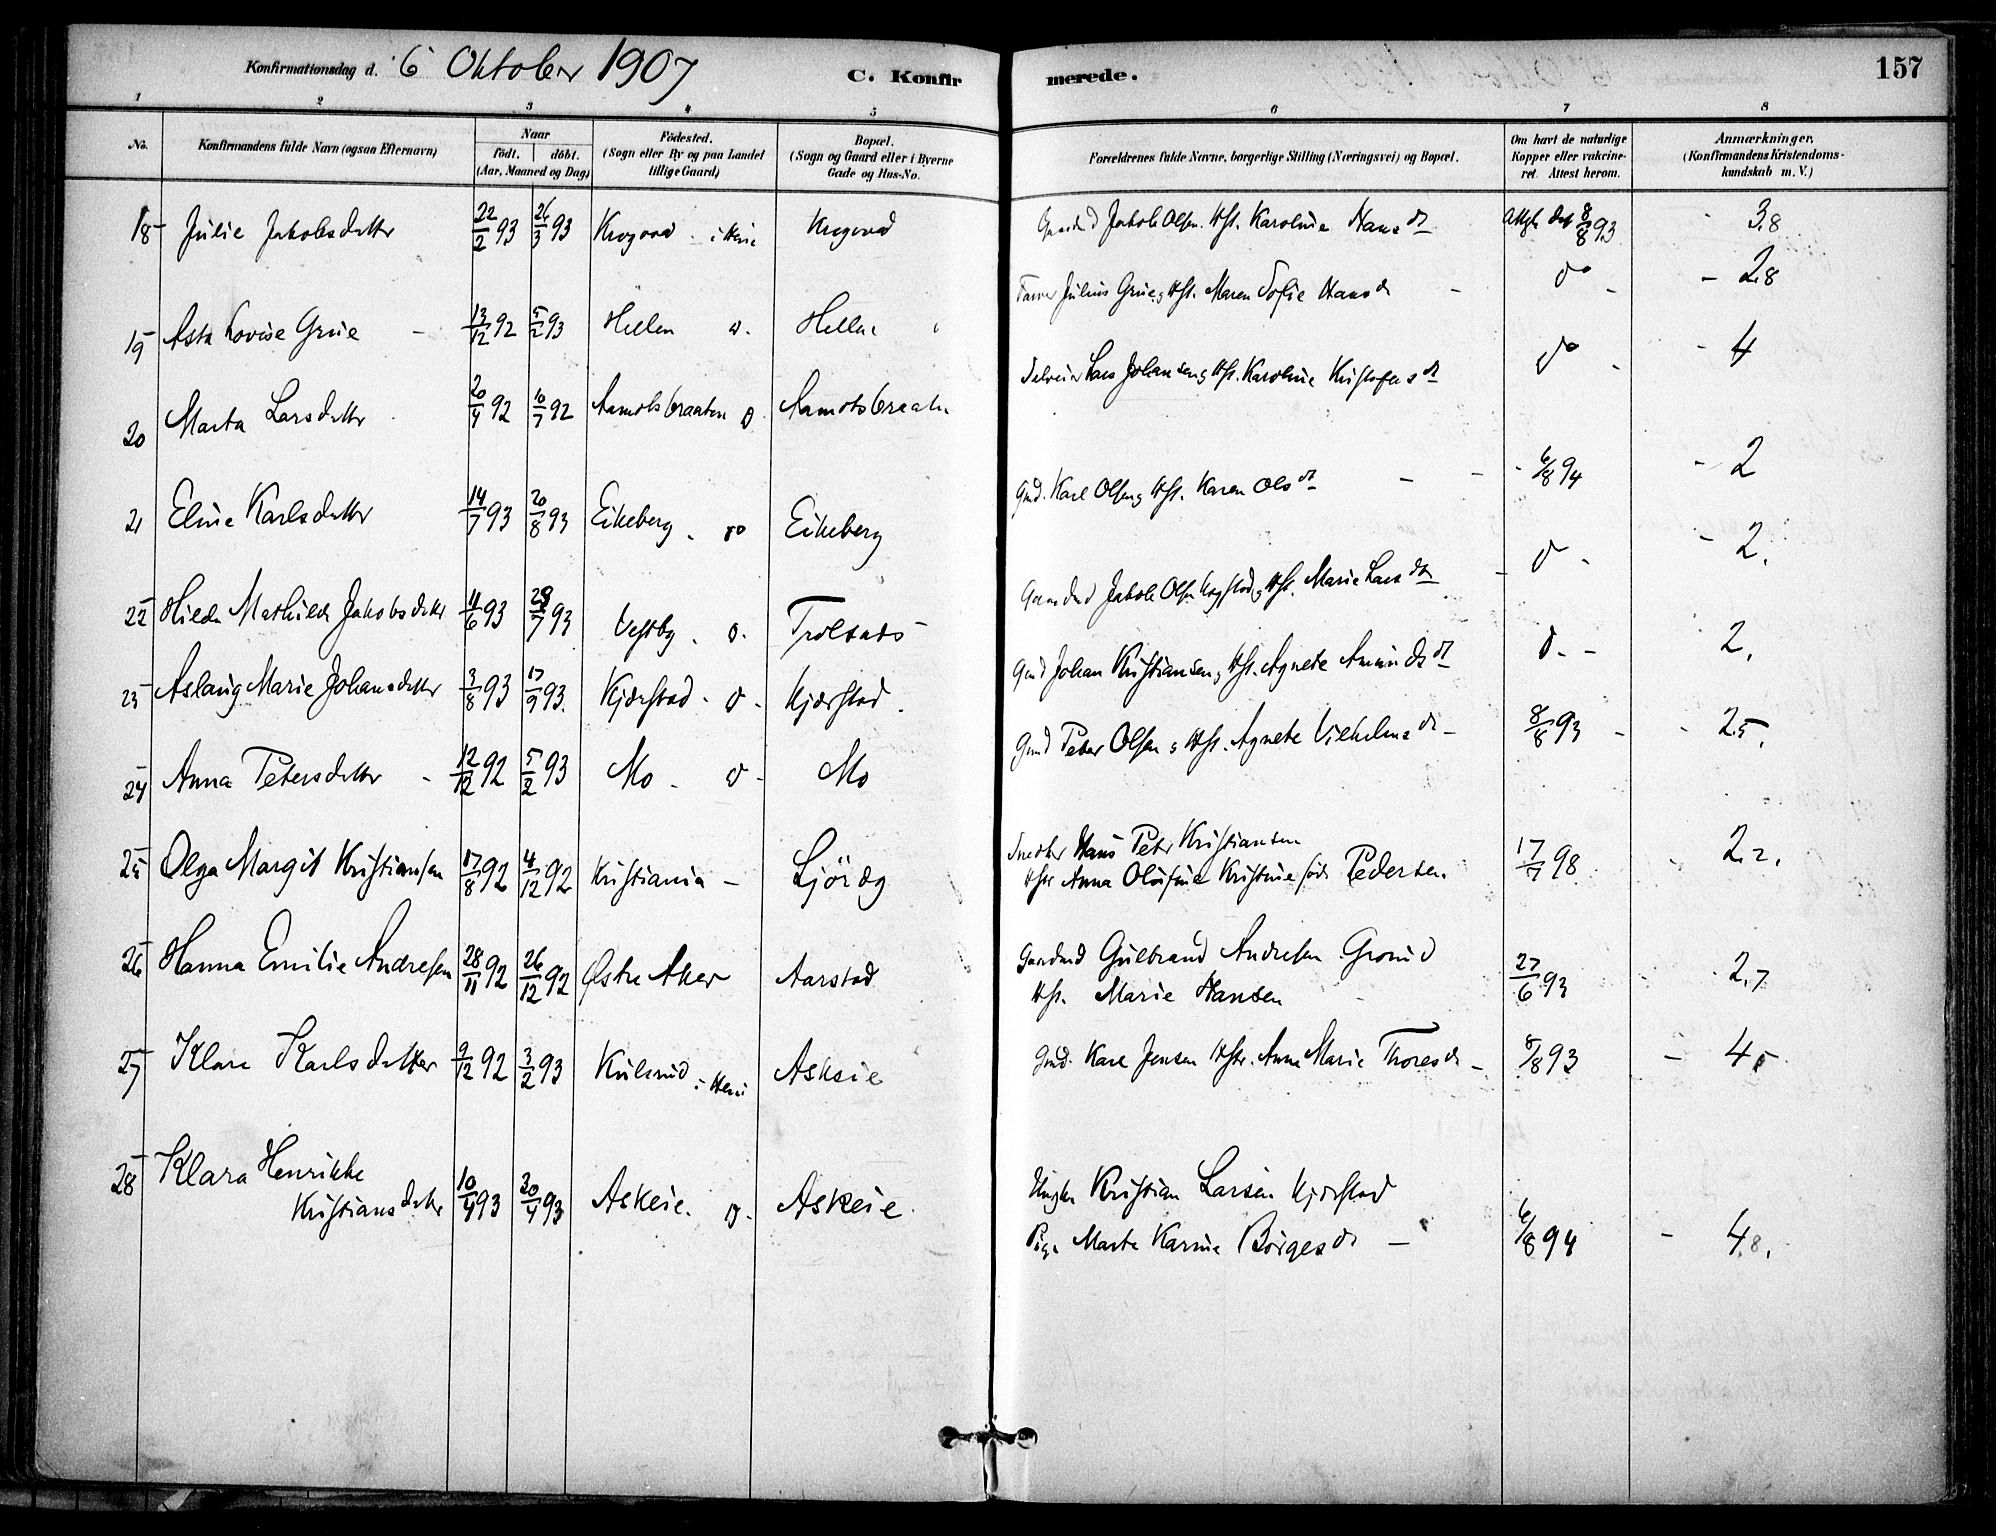 Konfirmationsdag d. 6 Oktober 1907 C. Konfirmerede. 157
1 2 3 4 5 6 7 8
No. Konfirmandens fulde Navn (ogsaa Efternavn) Naar födt. döbt. (Aar, Maaned og Dag) Födested. (Sogn eller By og paa Landet tillige Gaard) Bopæl. (Sogn og Gaard eller i Byerne Gade og Hus-No. Forældrenes fulde Navne, borgerlige Stilling (Næringsvei) og Bopæl. Om havt de naturlige Kopper eller vakcineret. Attest herom. Anmærkninger, (Konfirmandens Kristendomskundskab m. V.)
18 Julie Jakobsdatter 22/2 93 26/3 93 Jakob Olsen Hst. Karoline Hansdt 8/8 93 3.8
19 Asta Lovise Grue 13/12 92 5/2 93 Hellen Julius Grue Hst. Maren Sofie Hansd do - 2.8
20 Marta Larsdatter 20/4 92 10/7 92 Aamotsbraaten Aamotsbraaten Lars Johansen Hst. Karoline Kristofersdt do - 4
21 Eline Karlsdatter 14/7 93 20/8 93 Eikeberg do Eikeberg Gmd. Karl Olsen Hst. Karen Olsdt 6/8 94 - 2
22 Hilda Mathilde Jakobsdatter 11/6 93 7 93 Vestby Jakob Olsen Hst. Marie Larsdt - 2.
23 Aslaug Marie Johansdatter 3/8 93 17/9 93. Kjærstad Kjærstad. Gmd Johan Kristiansen Hst. Agnete Amundsdt 2.
24 Anna Petersdatter 12/12 92 5/2 93 Mo Mo Gmd Peter Olsen Hst. Agnete Vilhelmsdt 8/8 93 - 2.5.
25 Olga Margit Kristiansen 17/8 92 4/12 92 Kristiania - Snedker Hans Peter Kristiansen
Hst Anna Olufine Kristine föd Pedersen. 17/7 98 2.2.
26 Hanna Emilie Andresen 28/11 92 26/12 92 Østre Aker Aarstad Gulbrand Andresen
Hst. Marie Hansen 27/6 93 2.7
27 Klara Karlsdatter 9/12 92 3/2 93 Kulsrud Askeie Gmd. Karl Jensen Hst. Anne Marie Thoresdt 8/8 93 - 4.
28 Klara Henrikke
Kristiansdatter 10/4 93 30/4 93 Askeie. Askeie. Kristian Larsen Kjærstad
Pige Marte Karine Börgesdt 6/8 94 - 4.8.